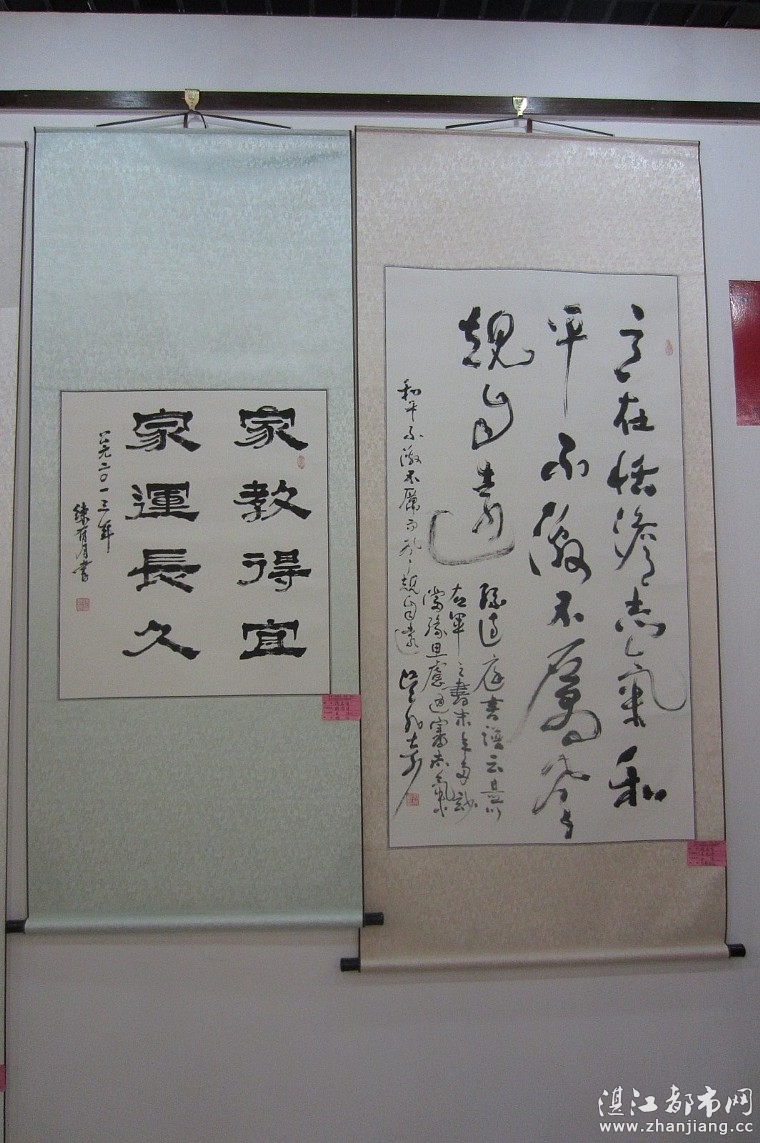 家教得宜
家運長久
公元二〇一三年
書
在恬澹志氣和
平不激不厲風
規自遠
孫過庭書譜云是以
右軍之書末年多妙
當緣思慮通審志氣
和平不激不厲而風規自遠
湛江都市网
www.zhanjiang.cc